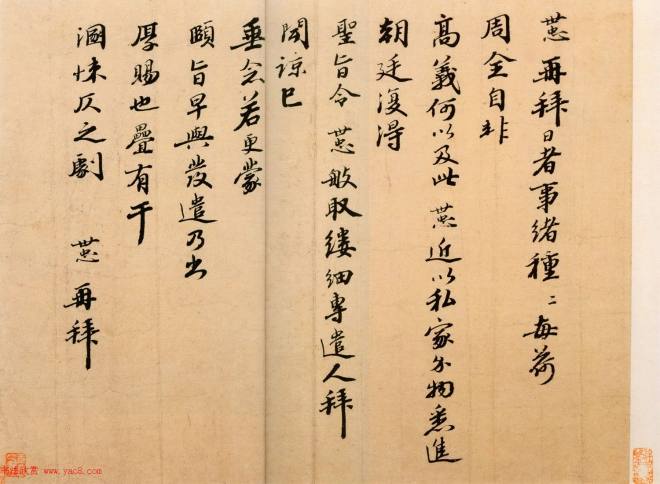 世忠再拜日者事緒種〻每荷
周全自非
高義何以及此世忠近以私家分物悉進
朝廷復得
聖旨令世忠敏取縷細專遣人拜
聞諒已
垂念若更蒙
頤旨早與發遣乃出
厚賜也疊有干
溷悚仄之劇 世忠再拜
书法欣赏 www.yac8.com